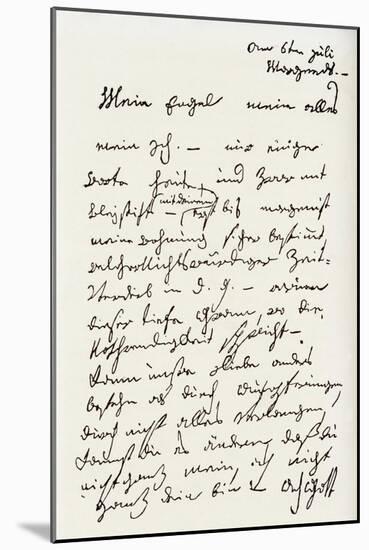 am 6ten Juli
Morgends. –
Mein Engel mein alles
mein Ich. – nur einige
Worte heute, und zwar mit
Bleystift – mit deinem – erst bis morgen ist
meine Wohnung sicher bestimmt
welcher Nichtswürdiger Zeit-
Verderb in d. g. – warum
dieser tiefe Gram, wo die
Nothwendigkeit spricht –
Kann unsre Liebe anders
bestehn als durch Aufopferungen,
durch nicht alles verlangen,
kannst du es ändern, daß du
nicht ganz mein, ich nicht
ganz dein bin – Ach Gott